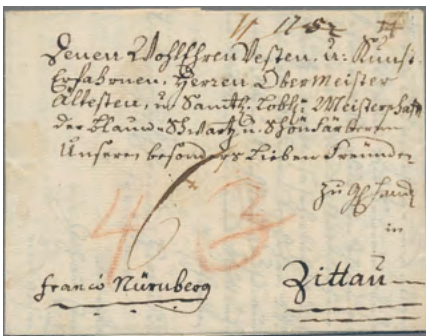 Denen WohlEhrenVesten. u: Kunst
Erfahrnen. Herren Obermeister
Ältesten, u Samtl: Löbl: Meisterschafft
der Blau= Schwartz u. Schönfärberen
Unseren besonders Lieben Freunden
zu
in
43
franco Nürnberg
Zittau